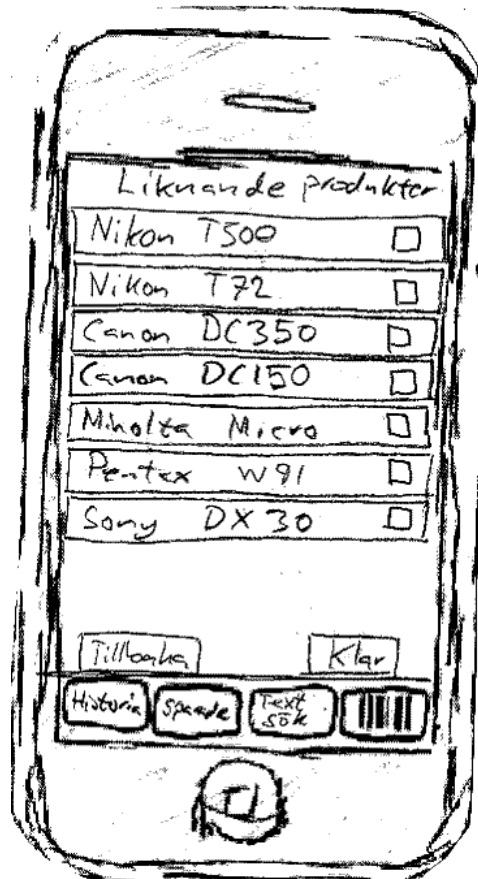 Liknande produkter
Nikon T500
Nikon T72
Canon DC350
Canon DC150
Minolta Micro
Pentax W91
Sony DX30
Tillbaka
Klar
Historia
Sparade
Text
sök